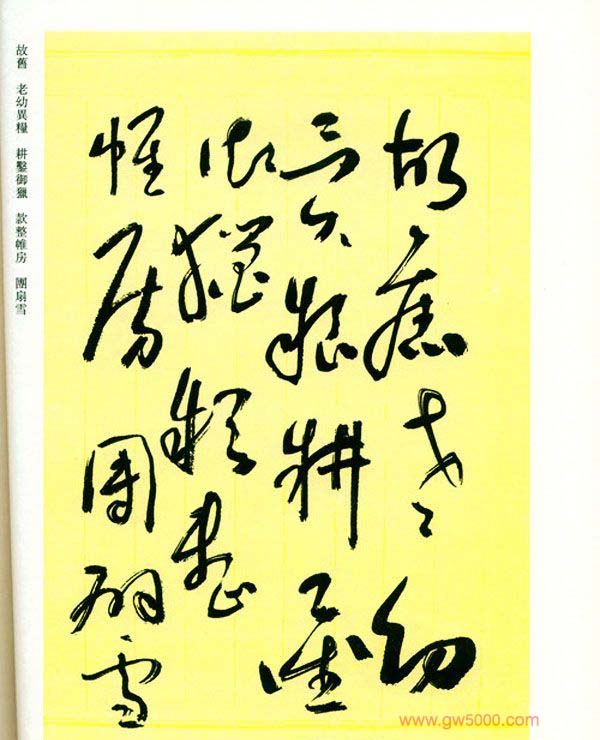 故舊老幼
異糧耕鑿
御獵款整
帷房團扇雪
故舊 老幼異糧 耕鑿御獵 款整帷房 團扇雪
www.gw5000.com